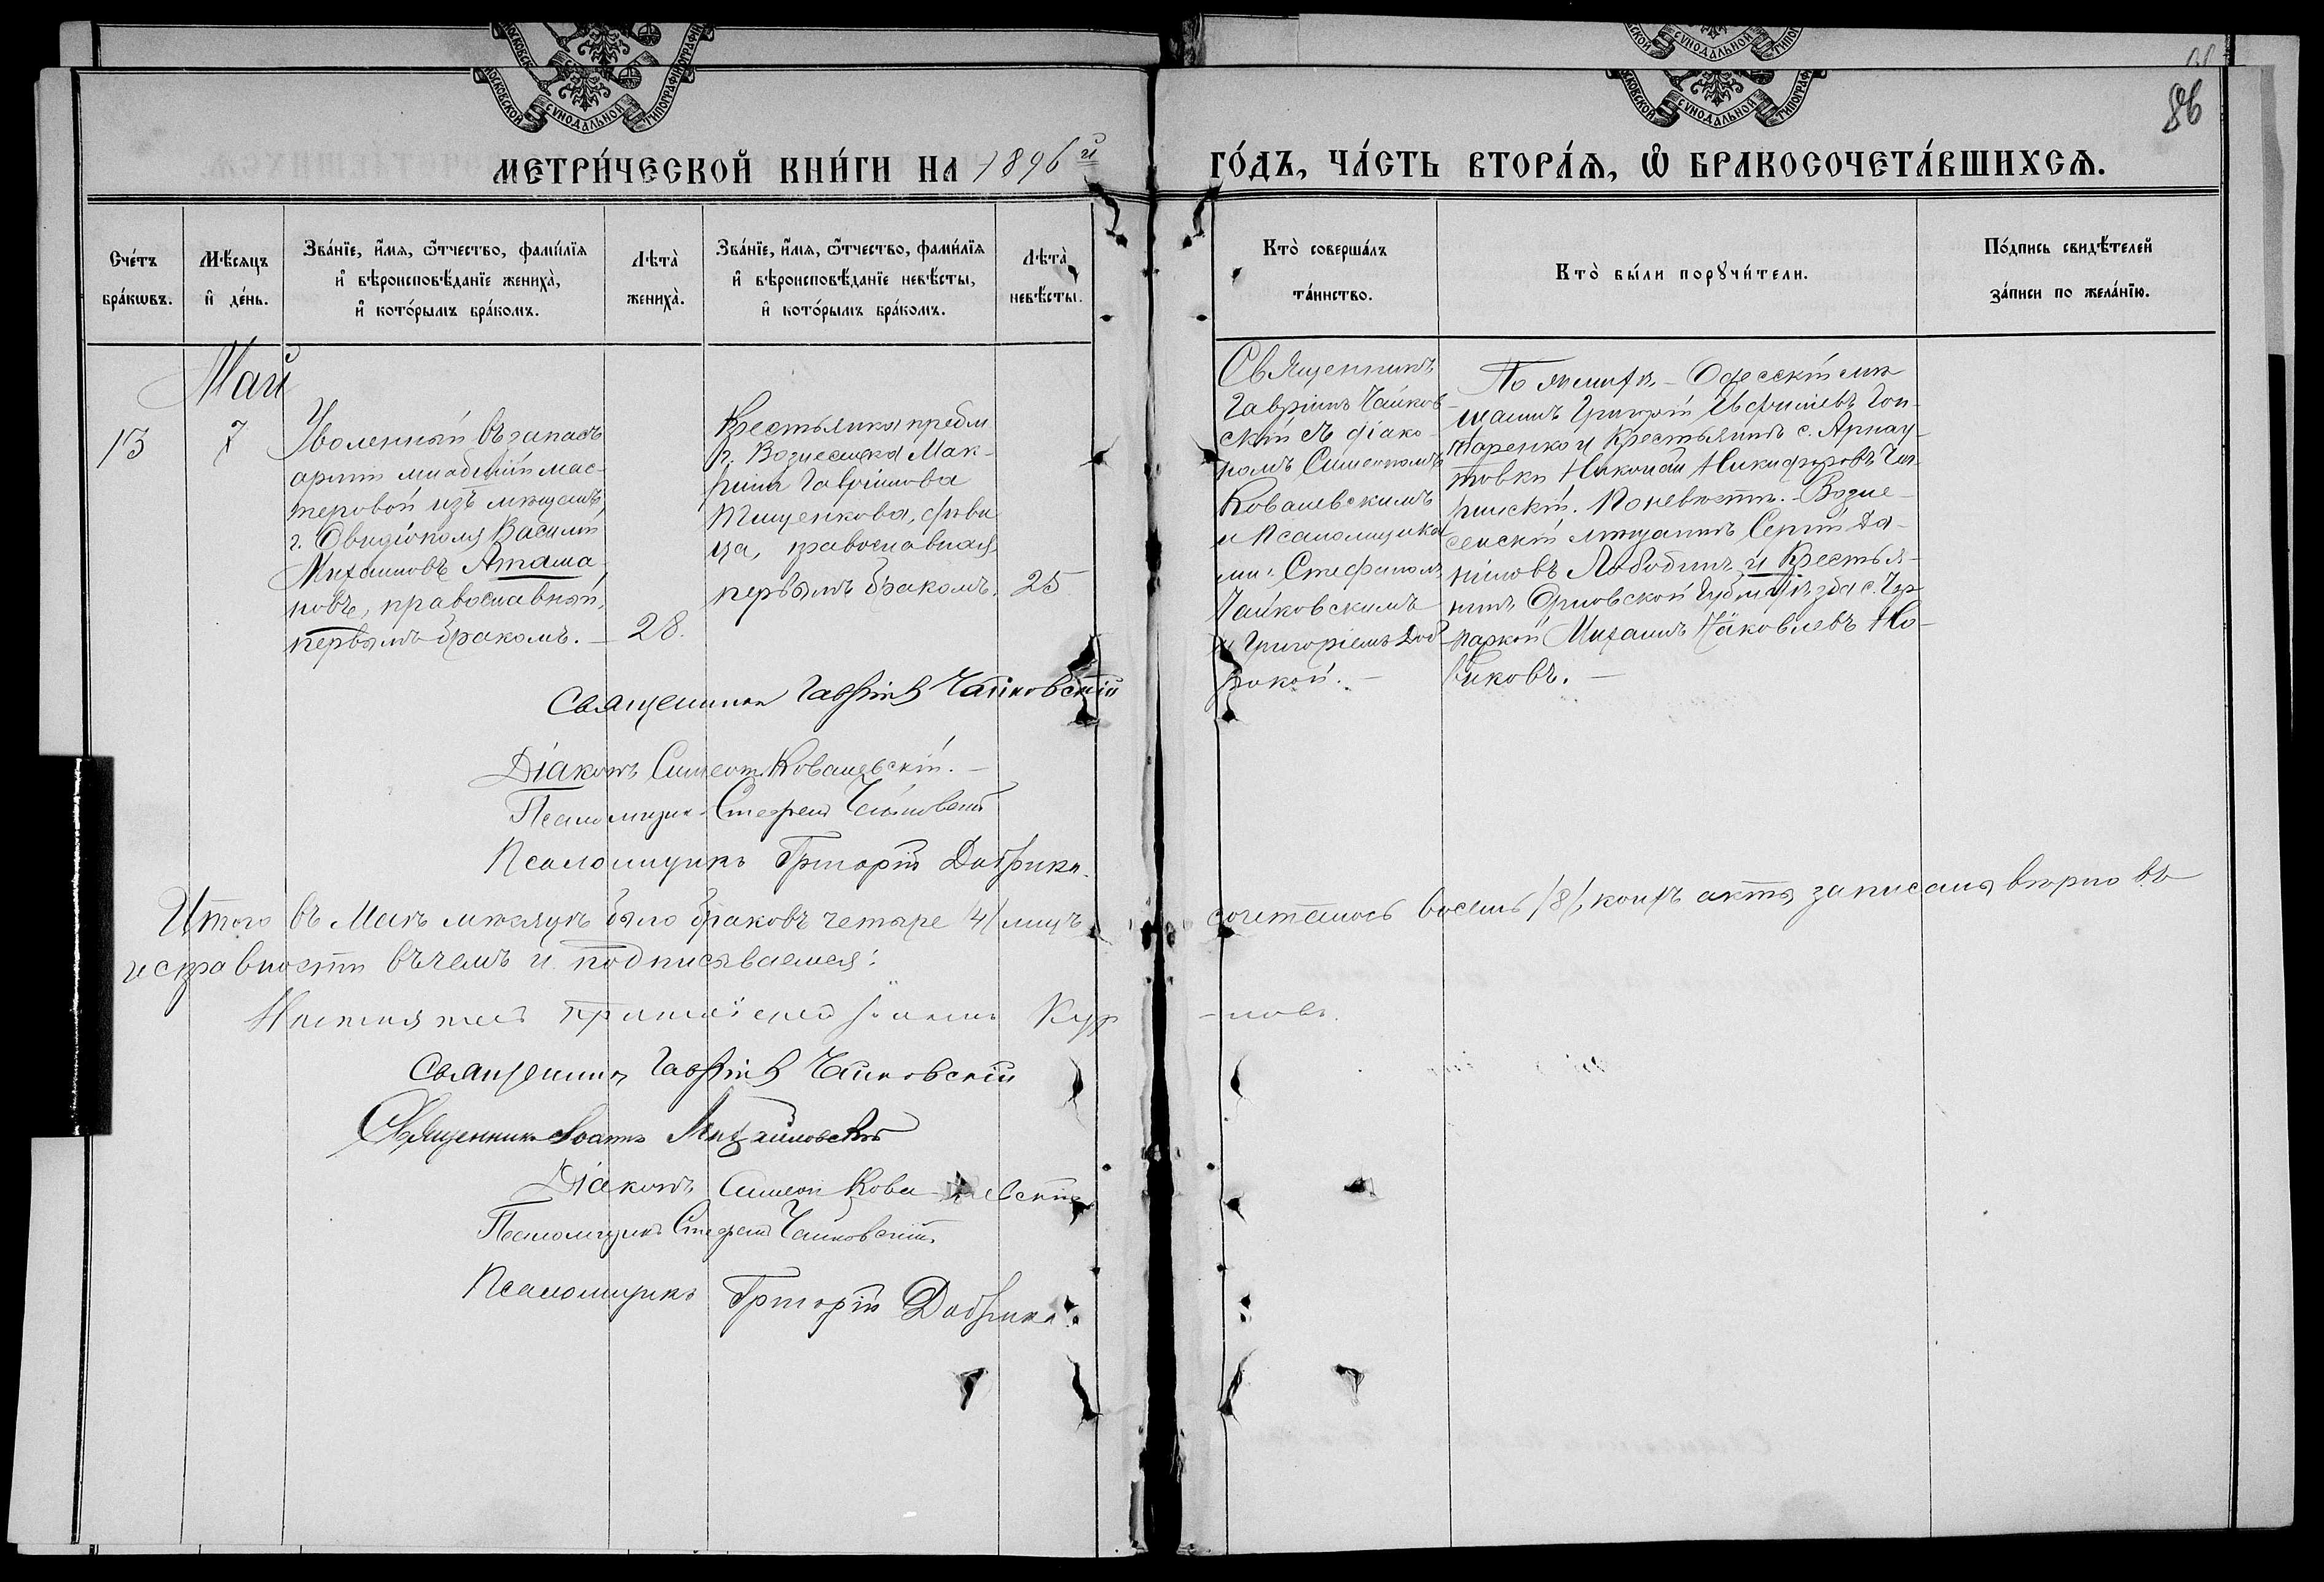 МОСКОВСКОЙ СѴНОДАЛЬНОЙ ТИПОГРАФІИ
86
МЕТРИ́ЧЕСКОЙ КНИ́ГИ НА 1896й
ГО́ДЪ, ЧА́СТЬ ВТОРА́Я, Ѽ БРАКОСОЧЕТА́ВШИХСЯ.
Сче́тъ бра́кѡвъ.
Мѣ́сяцъ и҆ де́нь.
Зва́нїе, и҆́мя, ѻ҆́тчество, фами́лїя
и҆ вѣроисповѣ́данїе жениха̀,
и҆ кото́рымъ бра́комъ.
Лѣта̀ жениха̀.
Зва́нїе, и҆́мя, ѻ҆́тчество, фами́лїя
и҆ вѣроисповѣ́данїе невѣ́сты,
и҆ кото́рымъ бра́комъ.
Лѣта̀ невѣ́сты.
Кто̀ соверша́лъ
та́инство.
Кто̀ бы́ли порꙋчи́тели.
По́дпись свидѣ́телей
за́писи по жела́нїю.
Май
13
7
Уволенный въ запасъ
арміи младшій мас-
теровой изъ мѣщанъ
г. Овидіополя Василій
Михаиловъ Атама
новъ, православный,
первымъ бракомъ. –
28.
Крестьянка предм
г. Вознесенска Мак-
рина Гавріилова
Тищенкова, дѣви
ца, православная,
первымъ бракомъ.
25
Священникъ
Гавріилъ Чайков-
скій съ діако-
номъ Симеономъ
Ковалевскимъ
и Псаломщика
ми: Стефаномъ
Чайковскимъ
и Григоріемъ Доб-
рокой. –
По женихѣ – Одесскій мѣ
щанинъ Григорій Евфиміевъ Гон-
таренко и Крестьянинъ с. Арнау-
товки Николай Никифоровъ
По невѣстѣ – Возне-
сенскій мѣщанинъ Сергій Да-
ніиловъ Лободинъ и Крестья-
нинъ Орловской губ.
Михаилъ Яковлевъ Но-
виковъ. –
Священникъ Гавріилъ Чайковскій
Діаконъ Симеонъ Ковалевскій. –
Псаломщикъ Стефанъ Чайковскій
Псаломщикъ Григорій Добрика.
Итого въ Маѣ мѣсяцѣ было браковъ четыре /4/ лицъ сочеталось восемь /8/, коихъ акты записаны вѣрно въ
исправности въ чемъ и подписываемся:
Настоятель протоіерей
Священникъ Гавріилъ Чайковскій
Священникъ Іоаннъ Михайловскій
Діаконъ Симеонъ Ковалевскій
Псаломщикъ Стефанъ Чайковскій.
Псаломщикъ Григорій Добрика.